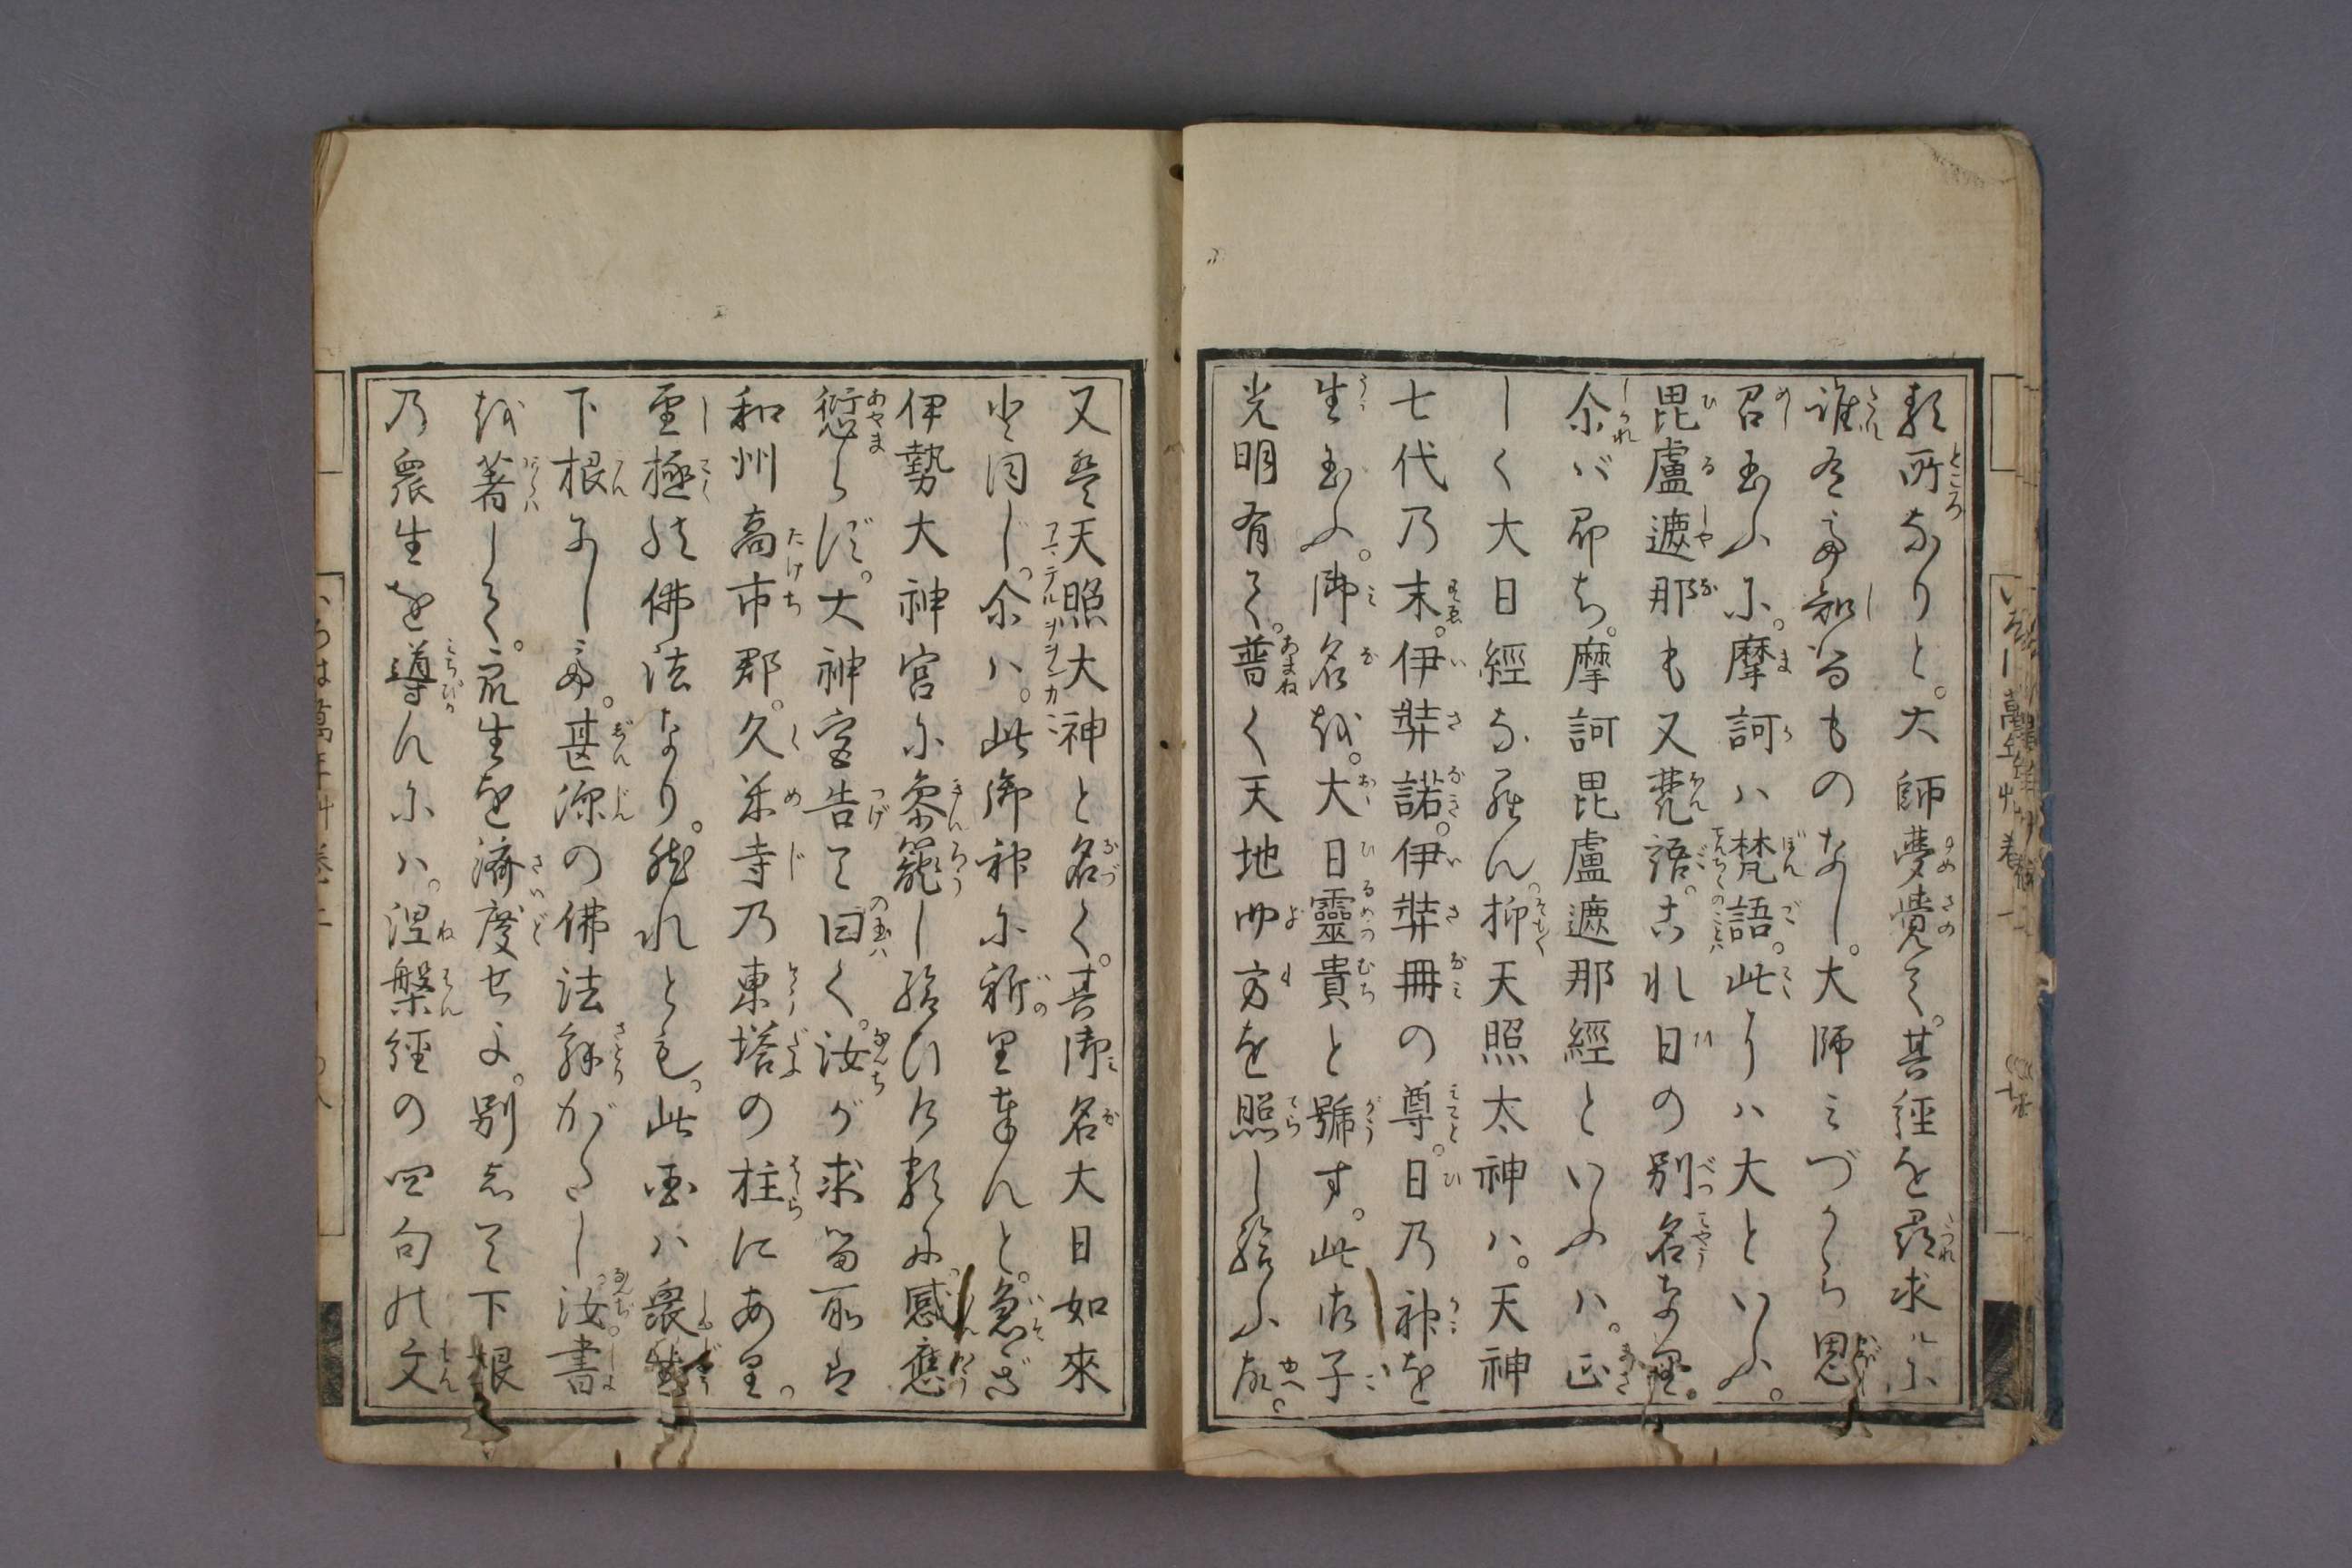 類所なりと。大師夢覚て。其經を尋求ルに
誰有て知るものなし。大師みづから思
召玉ふに。摩訶ハ梵語。此にハ大といふ。
毘盧遮那も又梵語。これ日の別名なり。
尓バ即ち。摩訶毘盧遮那經といふハ。正
しく大日經ならん。抑天照太神ハ。天神
七代乃末。伊弉諾。伊弉冊の尊。日乃神を
生玉ふ。御名を。大日靈貴と號す。此御子
光明有て。普く天地四方を照し給ふ故。
又是天照大神と名く。其御名大日如來
と同じ。尓ハ。此御神に祈里奉んと。急ぎ
伊勢大神宮に參籠し給ひける類に。感應
愆らず。大神宮告て曰く。汝が求る所ハ
和州高市郡。久米寺乃東塔の柱にあり。
至極の佛法なり。然れとも。此國ハ衆生
下根にして。甚深の佛法解がたし。汝書
を著して。衆生を濟度せよ。別して下根
乃衆生を導んにハ。涅槃經の四句の文